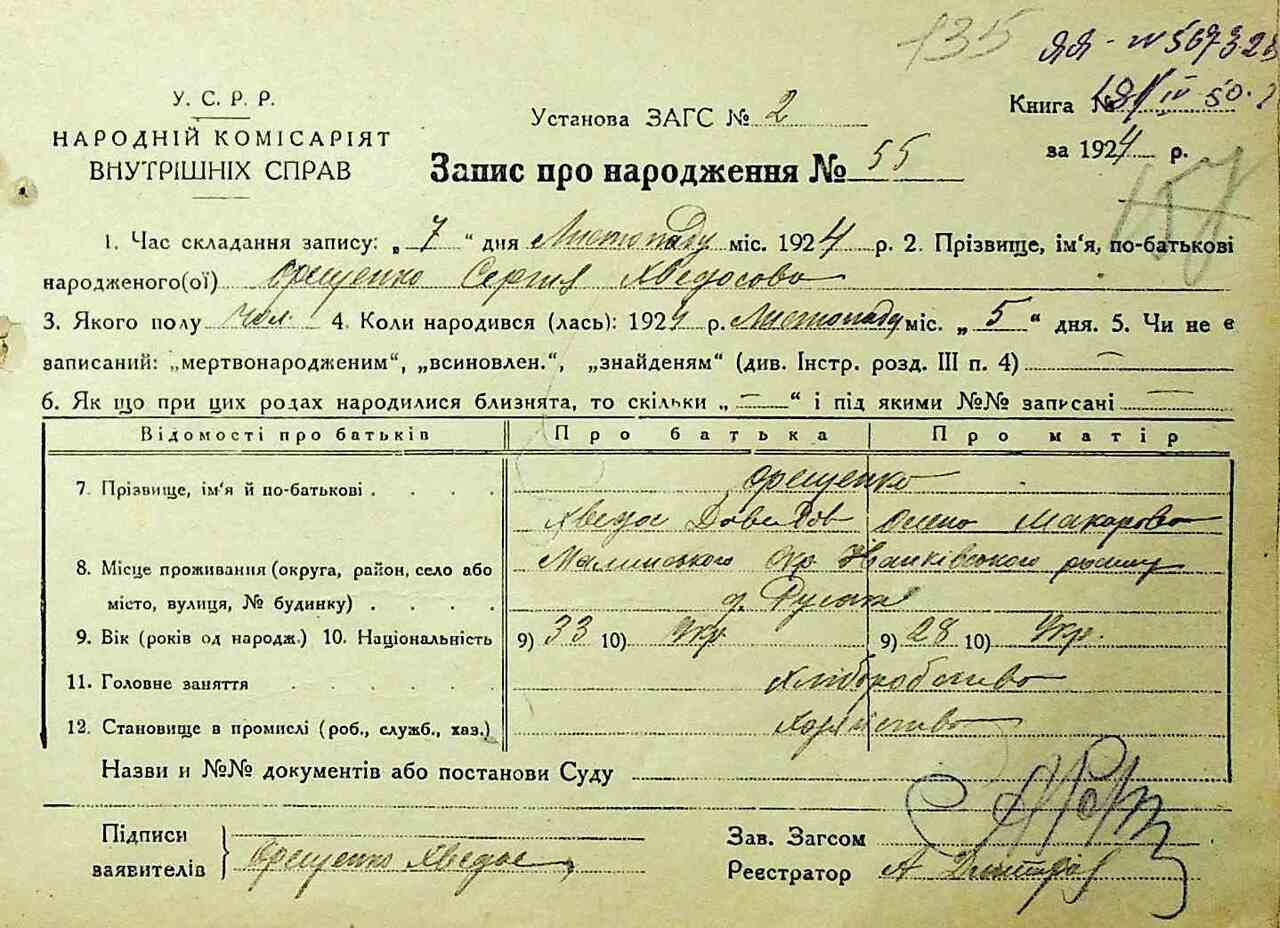 135
ЯЯ - № 567323
У. С. Р. Р.
НАРОДНІЙ КОМІСАРІЯТ
ВНУТРІШНІХ СПРАВ
Установа ЗАГС № 2
Книга №
IV 50
за 1924 р.
Запис про народження № 55
157
1. Час складання запису: „ 7 “ дня Листопаду міс. 1924 р. 2. Прізвище, ім'я, по-батькові
народженого(ої) Орещенко Сергія Хведосова
3. Якого полу чол. 4. Коли народився (лась): 1924 р. Листопаду міс. „ 5 “ дня. 5. Чи не є
записаний: „мертвонародженим“, „всиновлен.“, „знайденям“ (див. Інстр. розд. III п. 4) —
6. Як що при цих родах народилися близнята, то скільки „ — “ і під якими №№ записані —
Відомості про батьків Про батька Про матір
7. Прізвище, ім'я й по-батькові . . . . Орещенко
Хведос Давидов Олена Макарова
8. Місце проживання (округа, район, село або Малинського Окр.
місто, вулиця, № будинку) . . . .
9. Вік (років од народж.) 10. Національність 9) 33 10) Укр. 9) 28 10) Укр.
11. Головне заняття . . . . . Хліборобство
12. Становище в промислі (роб., служб., хаз.)
Назви и №№ документів або постанови Суду
Підписи
заявителів } Орещенко Хведос
Зав. Загсом
Реєстратор А